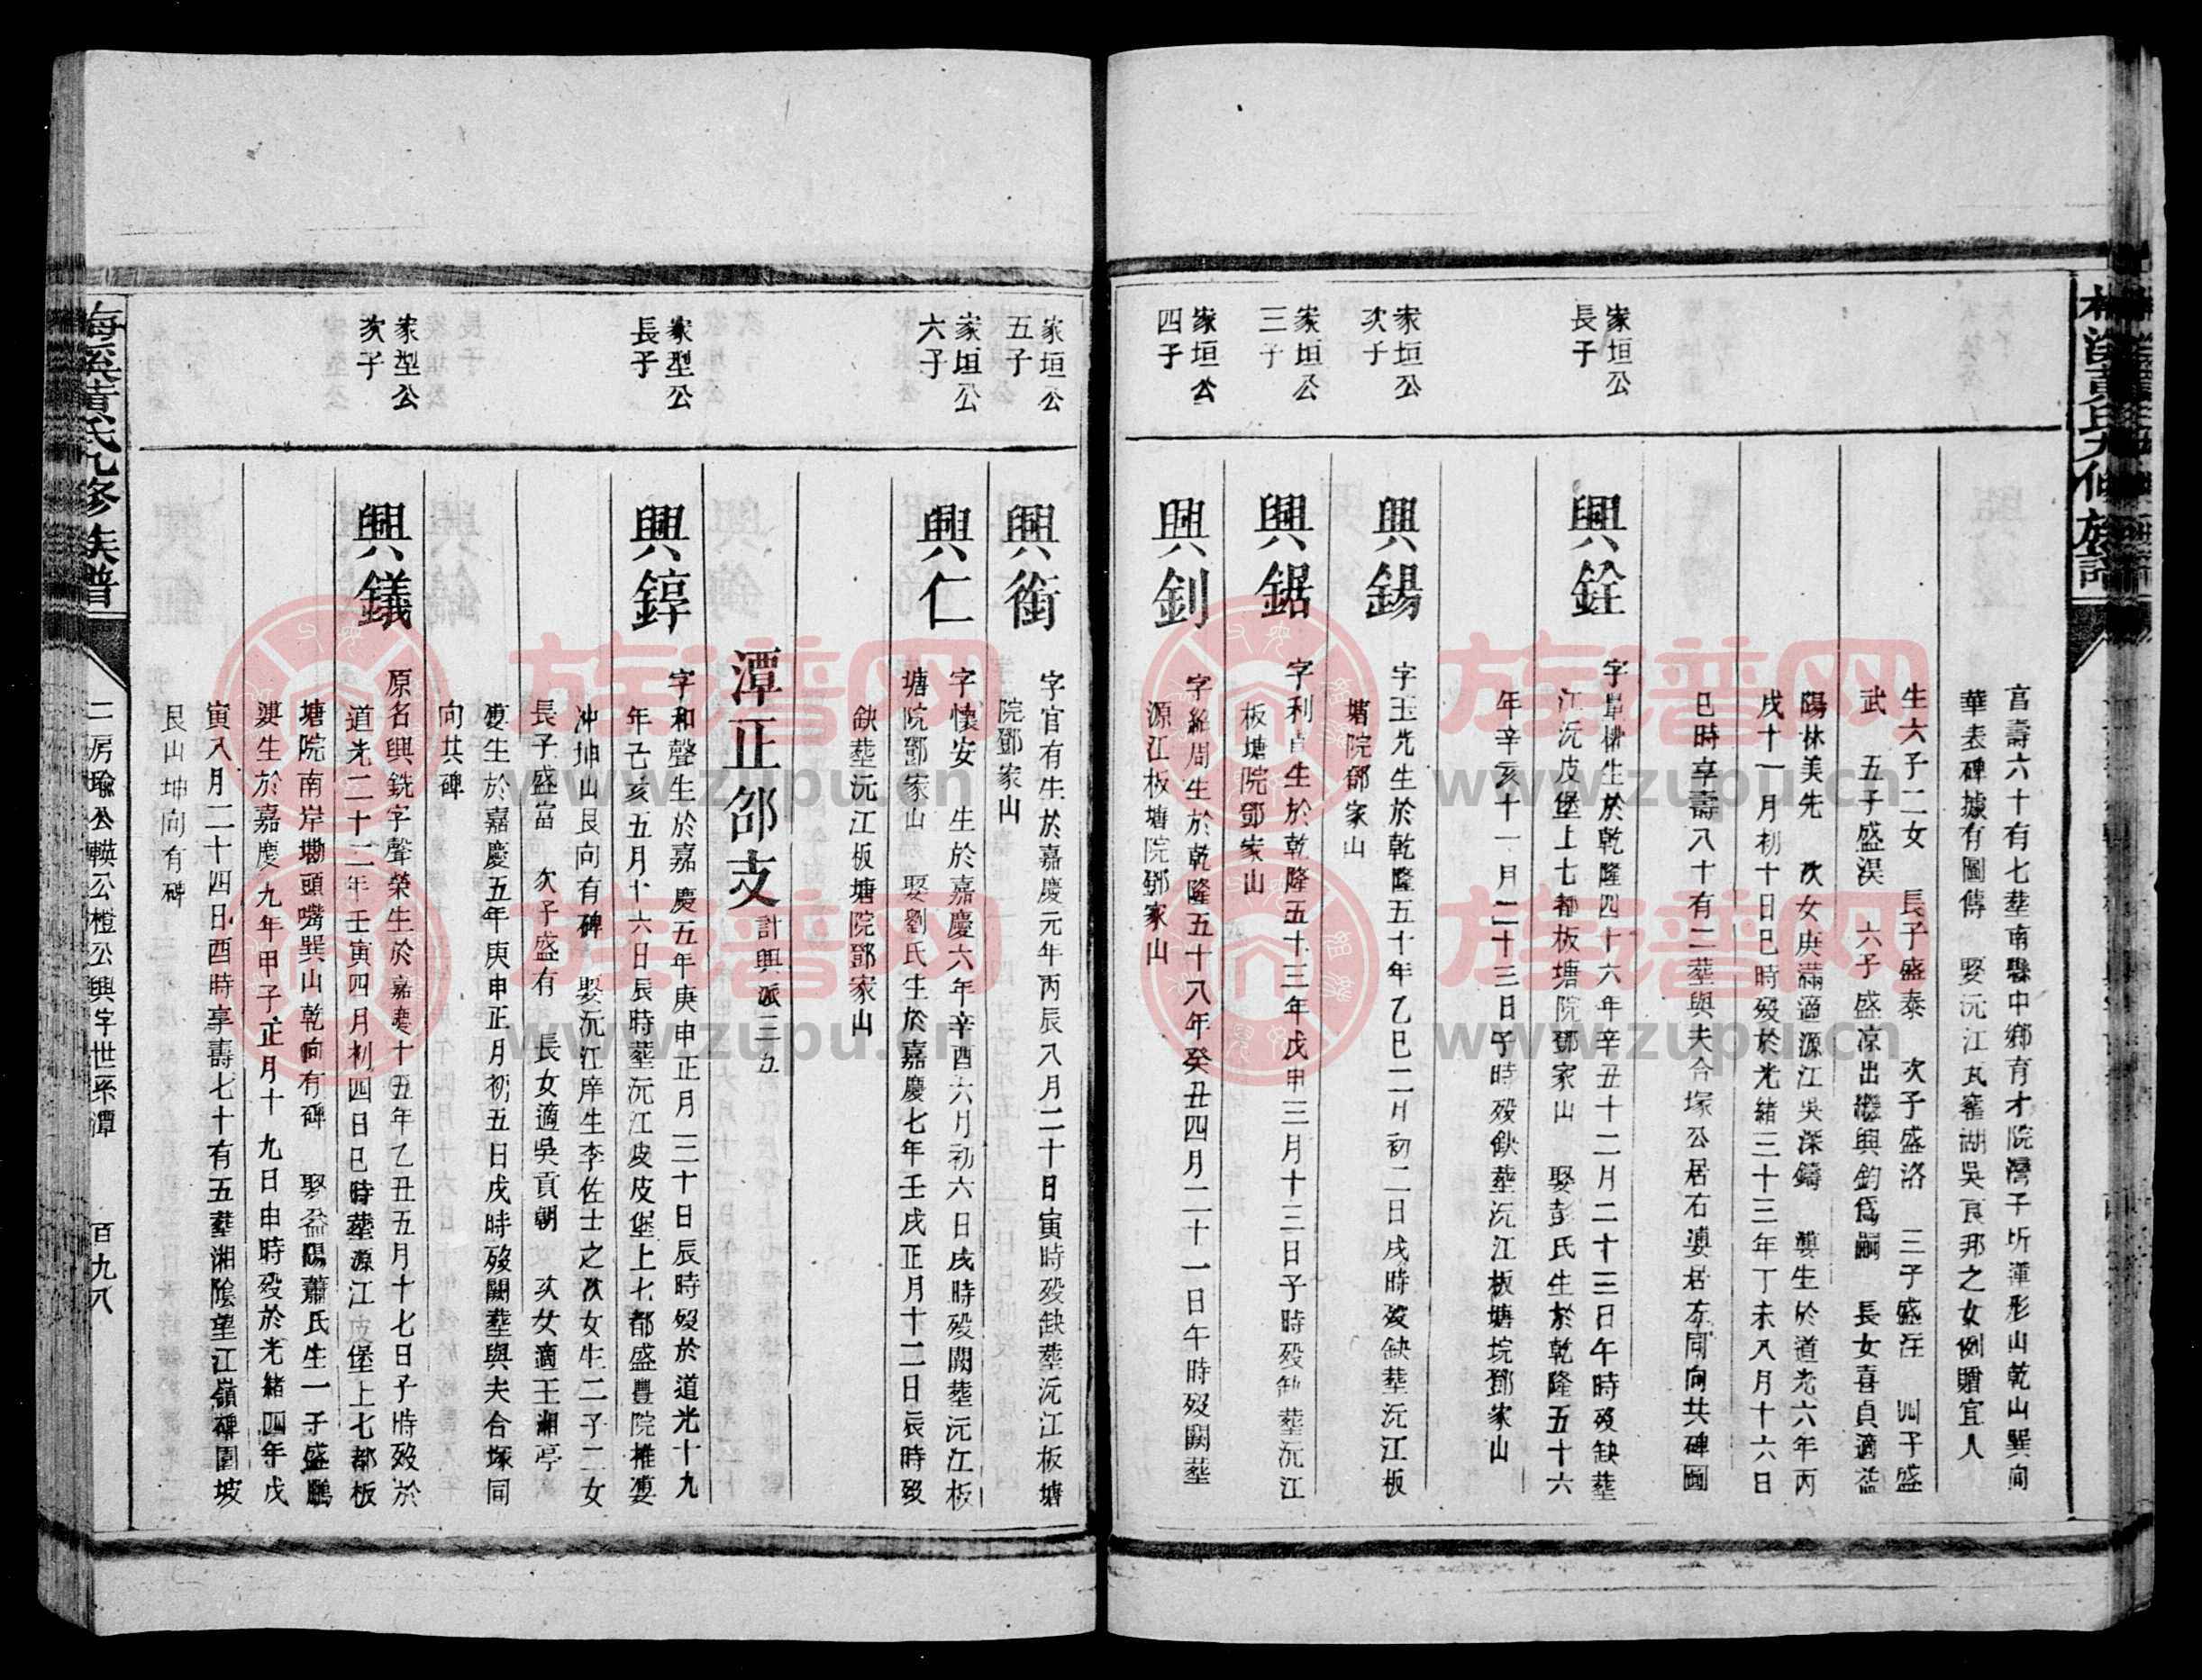 富壽六十有七塟南縣中鄉有才院灣子圻渾形山乾山巽向
華表碑據有圖傳　娶沅江瓦窰湖吳良邦之女例贈宜人
生六子二女　長子盛泰　次子盛洛　三子盛汪　四子盛
武　五子盛淏　六子盛凉出繼興鈞爲嗣　長女喜貞適益
陽林美先　次女庚滿適源江吳深鑄　生於道光六年丙
戌十一月初十日巳時歿於光緒三十三年丁未八月十六日
巳時享壽八十有二塟與夫合塚公居右居左同向共碑圖
家垣公長子
興銓
字生於乾隆四十六年辛丑十二月二十三日午時歿缺塟
江沅皮堡上七都板塘院鄧家山　娶彭氏生於乾隆五十六
年辛亥十一月二十三日子時歿缺塟沅江板塘垸鄧家山
家垣公次子
興錫
字玉先生於乾隆五十年乙巳二月初二日戌時歿缺塟沅江板
塘院鄧家山
家垣公三子
興鋸
字利貞生於乾隆五十三年戊申三月十三日子時歿缺塟沅江
板塘院鄧家山
家垣公四子
興釗
字紹周生於乾隆五十八年癸丑四月二十一日午時歿闕塟
源江板塘院鄧家山
家垣公五子
興銜
字官有生於嘉慶元年丙辰八月二十日寅時歿缺塟沅江板塘
院鄧家山
家垣公六子
興仁
字懷安　生於嘉慶六年辛酉六月初六日戌時歿闕塟沅江板
塘院鄧家山　娶劉氏生於嘉慶七年壬戌正月十二日辰時歿
缺塟沅江板塘院鄧家山
潭正邵支 計興派三五
家型公長子
興錞
字和聲生於嘉慶五年庚申正月三十日辰時歿於道光十九
年己亥五月十六日辰時塟沅江皮皮堡上七都盛豐院推
冲坤山艮向有碑　娶沅江庠生李佐士之次女生二子二女
長子盛富　次子盛有　長女適吳貢朝　次女適王湘亭
生於嘉慶五年庚申正月初五日戌時歿闕塟與夫合塚同
向共碑
家型公次子
興鏾
原名興銑字聲榮生於嘉慶十五年乙丑五月十七日子時歿於
道光二十二年壬寅四月初四日巳時塟源江皮堡上七都板
塘院南岸墈頭嘴巽山乾向有碑　娶益陽蕭氏生一子盛鵬
生於嘉慶九年甲子正月十九日申時歿於光緒四年戊
寅八月二十四日酉時享壽七十有五塟湘陰望江嶺碑圖坡
艮山坤向有碑
梅溪黃氏九修族譜
二房瑜公輳公橙公興字世系潭
百九八